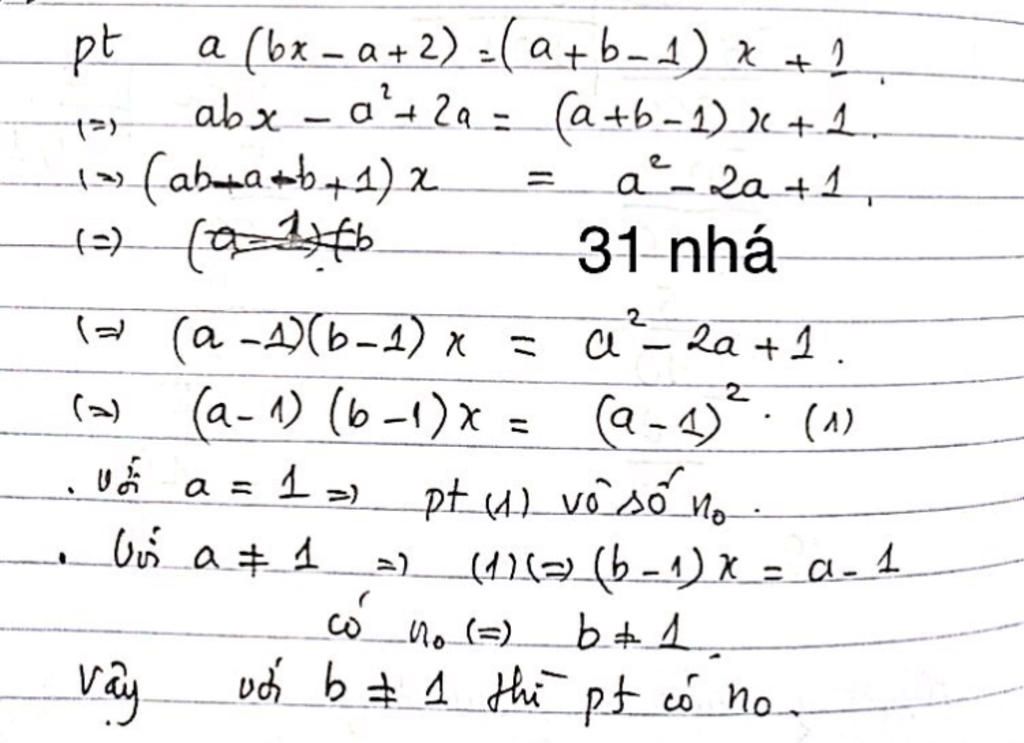 pt a (bx – a + 2) = (a + b – 1) x + 1
(=) abx – a² + 2a = (a + b – 1) x + 1.
(=) (ab – a – b + 1) x = a² – 2a + 1
(=) (a – 1)(b
31 nhá
(=) (a – 1)(b – 1) x = a² – 2a + 1.
(=) (a – 1) (b – 1) x = (a – 1)². (1)
. với a = 1 => pt (1) vô số n₀.
. Với a ≠ 1 => (1) (=) (b – 1) x = a – 1
có n₀ (=) b ≠ 1.
Vậy với b ≠ 1 thì pt có n₀.